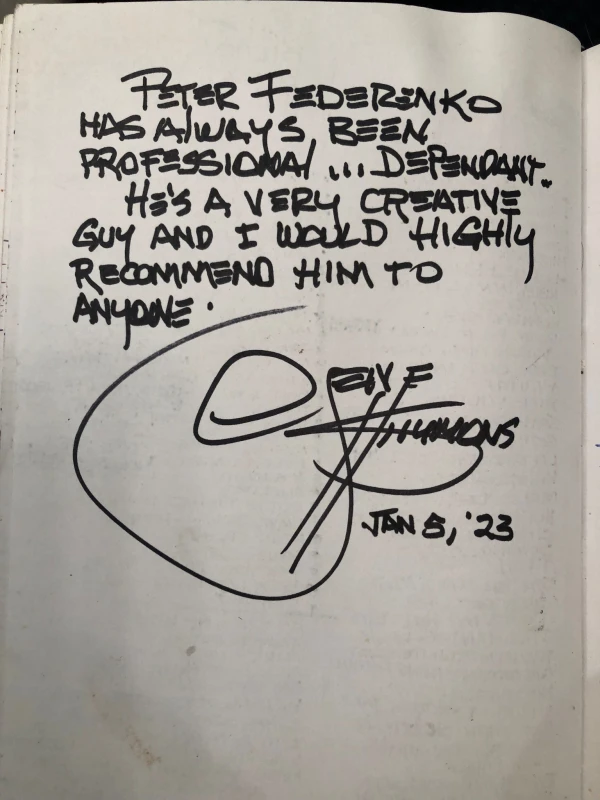 PETER FEDERENKO
HAS AlWAYS BEEN
PROFESSIONAl ... DEPENDANT..
HE'S A VERY CREATIVE
GUY AND I WOULD HIGHlY
RECOMMEND HIM TO
ANYONE.
GENE
SIMMONS
JAN 5, '23